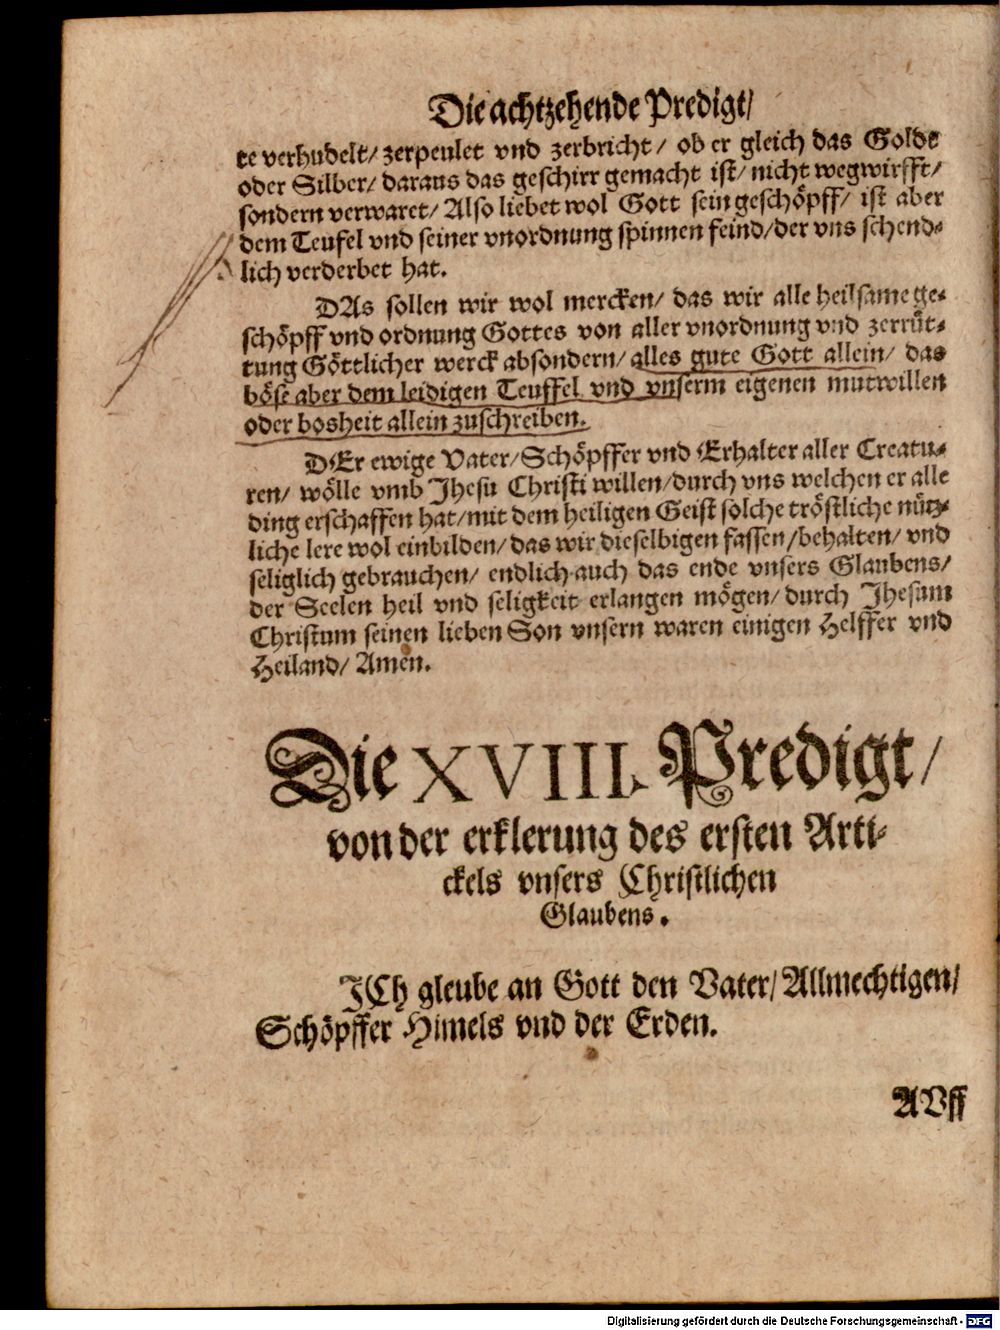 Die achtzehende Predigt/
te verhudelt/ zerpeulet vnd zerbricht/ ob er gleich das Golde
oder Silber/ daraus das geschirr gemacht ist/ nicht wegwirfft/
sondern verwaret/ Also liebet wol Gott sein geschöpff/ ist aber
dem Teufel vnd seiner vnordnung spinnen feind/ der vns schend-
lich verderbet hat.
DAs sollen wir wol mercken/ das wir alle heilsame ge-
schöpff vnd ordnung Gottes von aller vnordnung vnd zerrüt-
tung Göttlicher werck absondern/ alles gute Gott allein/ das
böse aber dem leidigen Teuffel vnd vnserm eigenen mutwillen
oder bosheit allein zuschreiben.
DEr ewige Vater/ Schöpffer vnd Erhalter aller Creatu-
ren/ wölle vmb Jhesu Christi willen/ durch vns welchen er alle
ding erschaffen hat/ mit dem heiligen Geist solche tröstliche nütz-
liche lere wol einbilden/ das wir dieselbigen fassen/ behalten/ vnd
seliglich gebrauchen/ endlich auch das ende vnsers Glaubens/
der Seelen heil vnd seligkeit erlangen mögen/ durch Jhesum
Christum seinen lieben Son vnsern waren einigen Helffer vnd
Heiland/ Amen.
Die XVIII. Predigt/
von der erklerung des ersten Arti-
ckels vnsers Christlichen
Glaubens.
JCh gleube an Gott den Vater/ Allmechtigen/
Schöpffer Himels vnd der Erden.
AVff
Digitalisierung gefördert durch die Deutsche Forschungsgemeinschaft - DFG